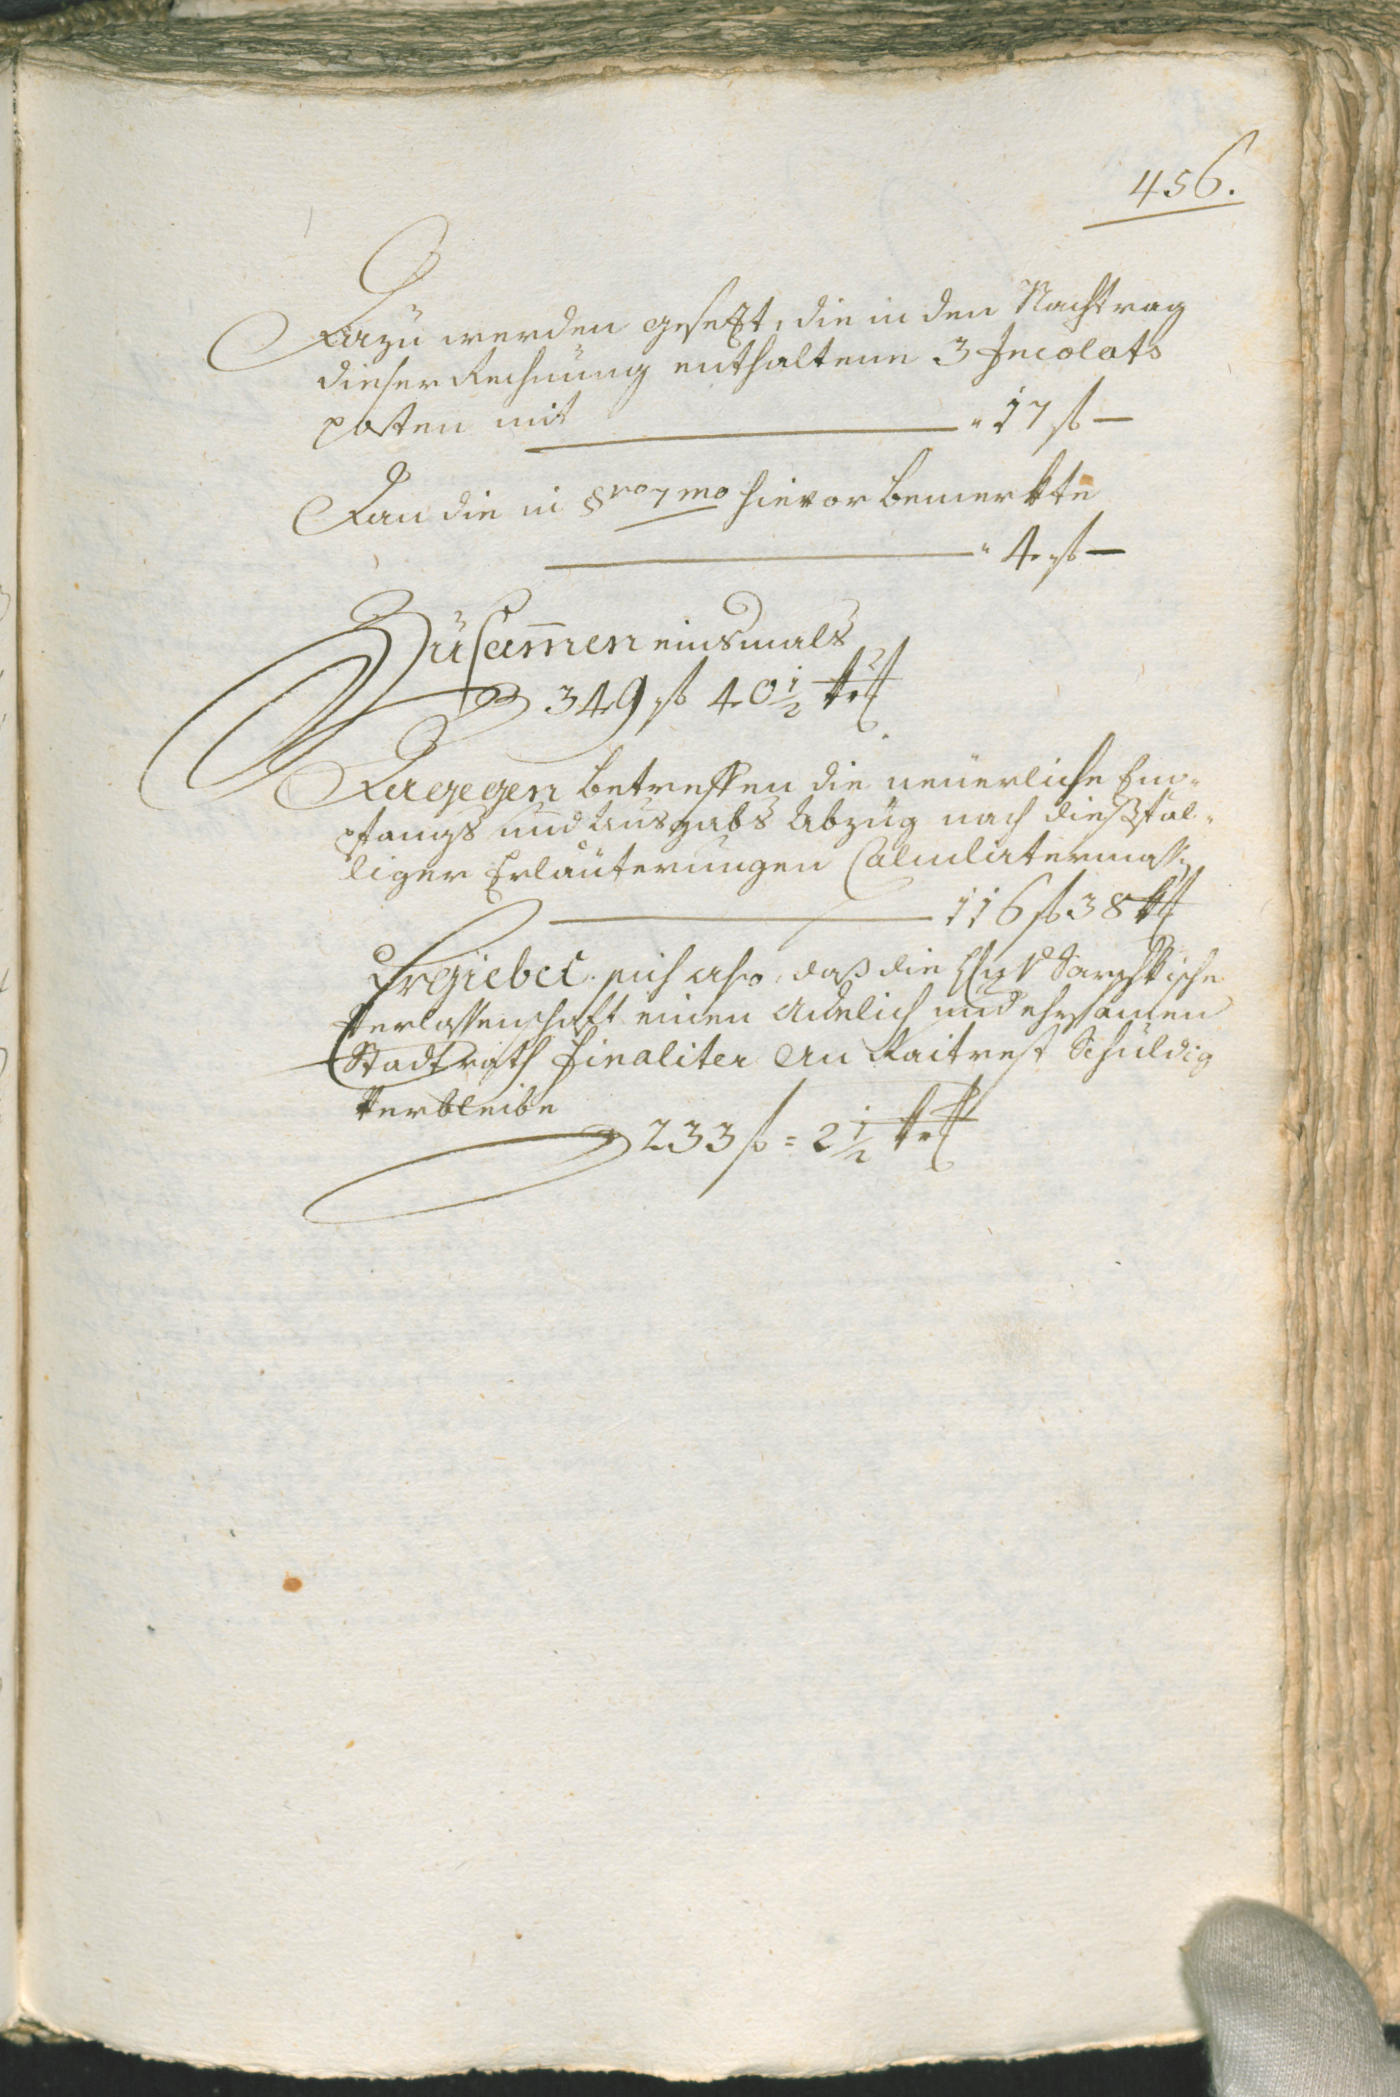 456.
Dazu werden gesetzt, die in den Nachtrag
dieser Rechnung enthaltenn 3 Incolats
posten mit " 17 fl —
Dan die in §vo 7mo hievor bemerkte
" 4 fl —
Zusam̄en einsmals
349 fl 40 1/2 kr
Dagegen betreffen die neuerliche Em-
pfangs und Ausgabs Abzüg nach dießfäl-
liger Erläuterungen Calculatermaßẽ
116 fl 38 kr
Ergiebet sich also, daß die
Verlassenschaft einen Adelich und ehrsamen
Stadtrath finaliter an Raitrest Schuldig
Verbleibe
233 fl = 2 1/2 kr